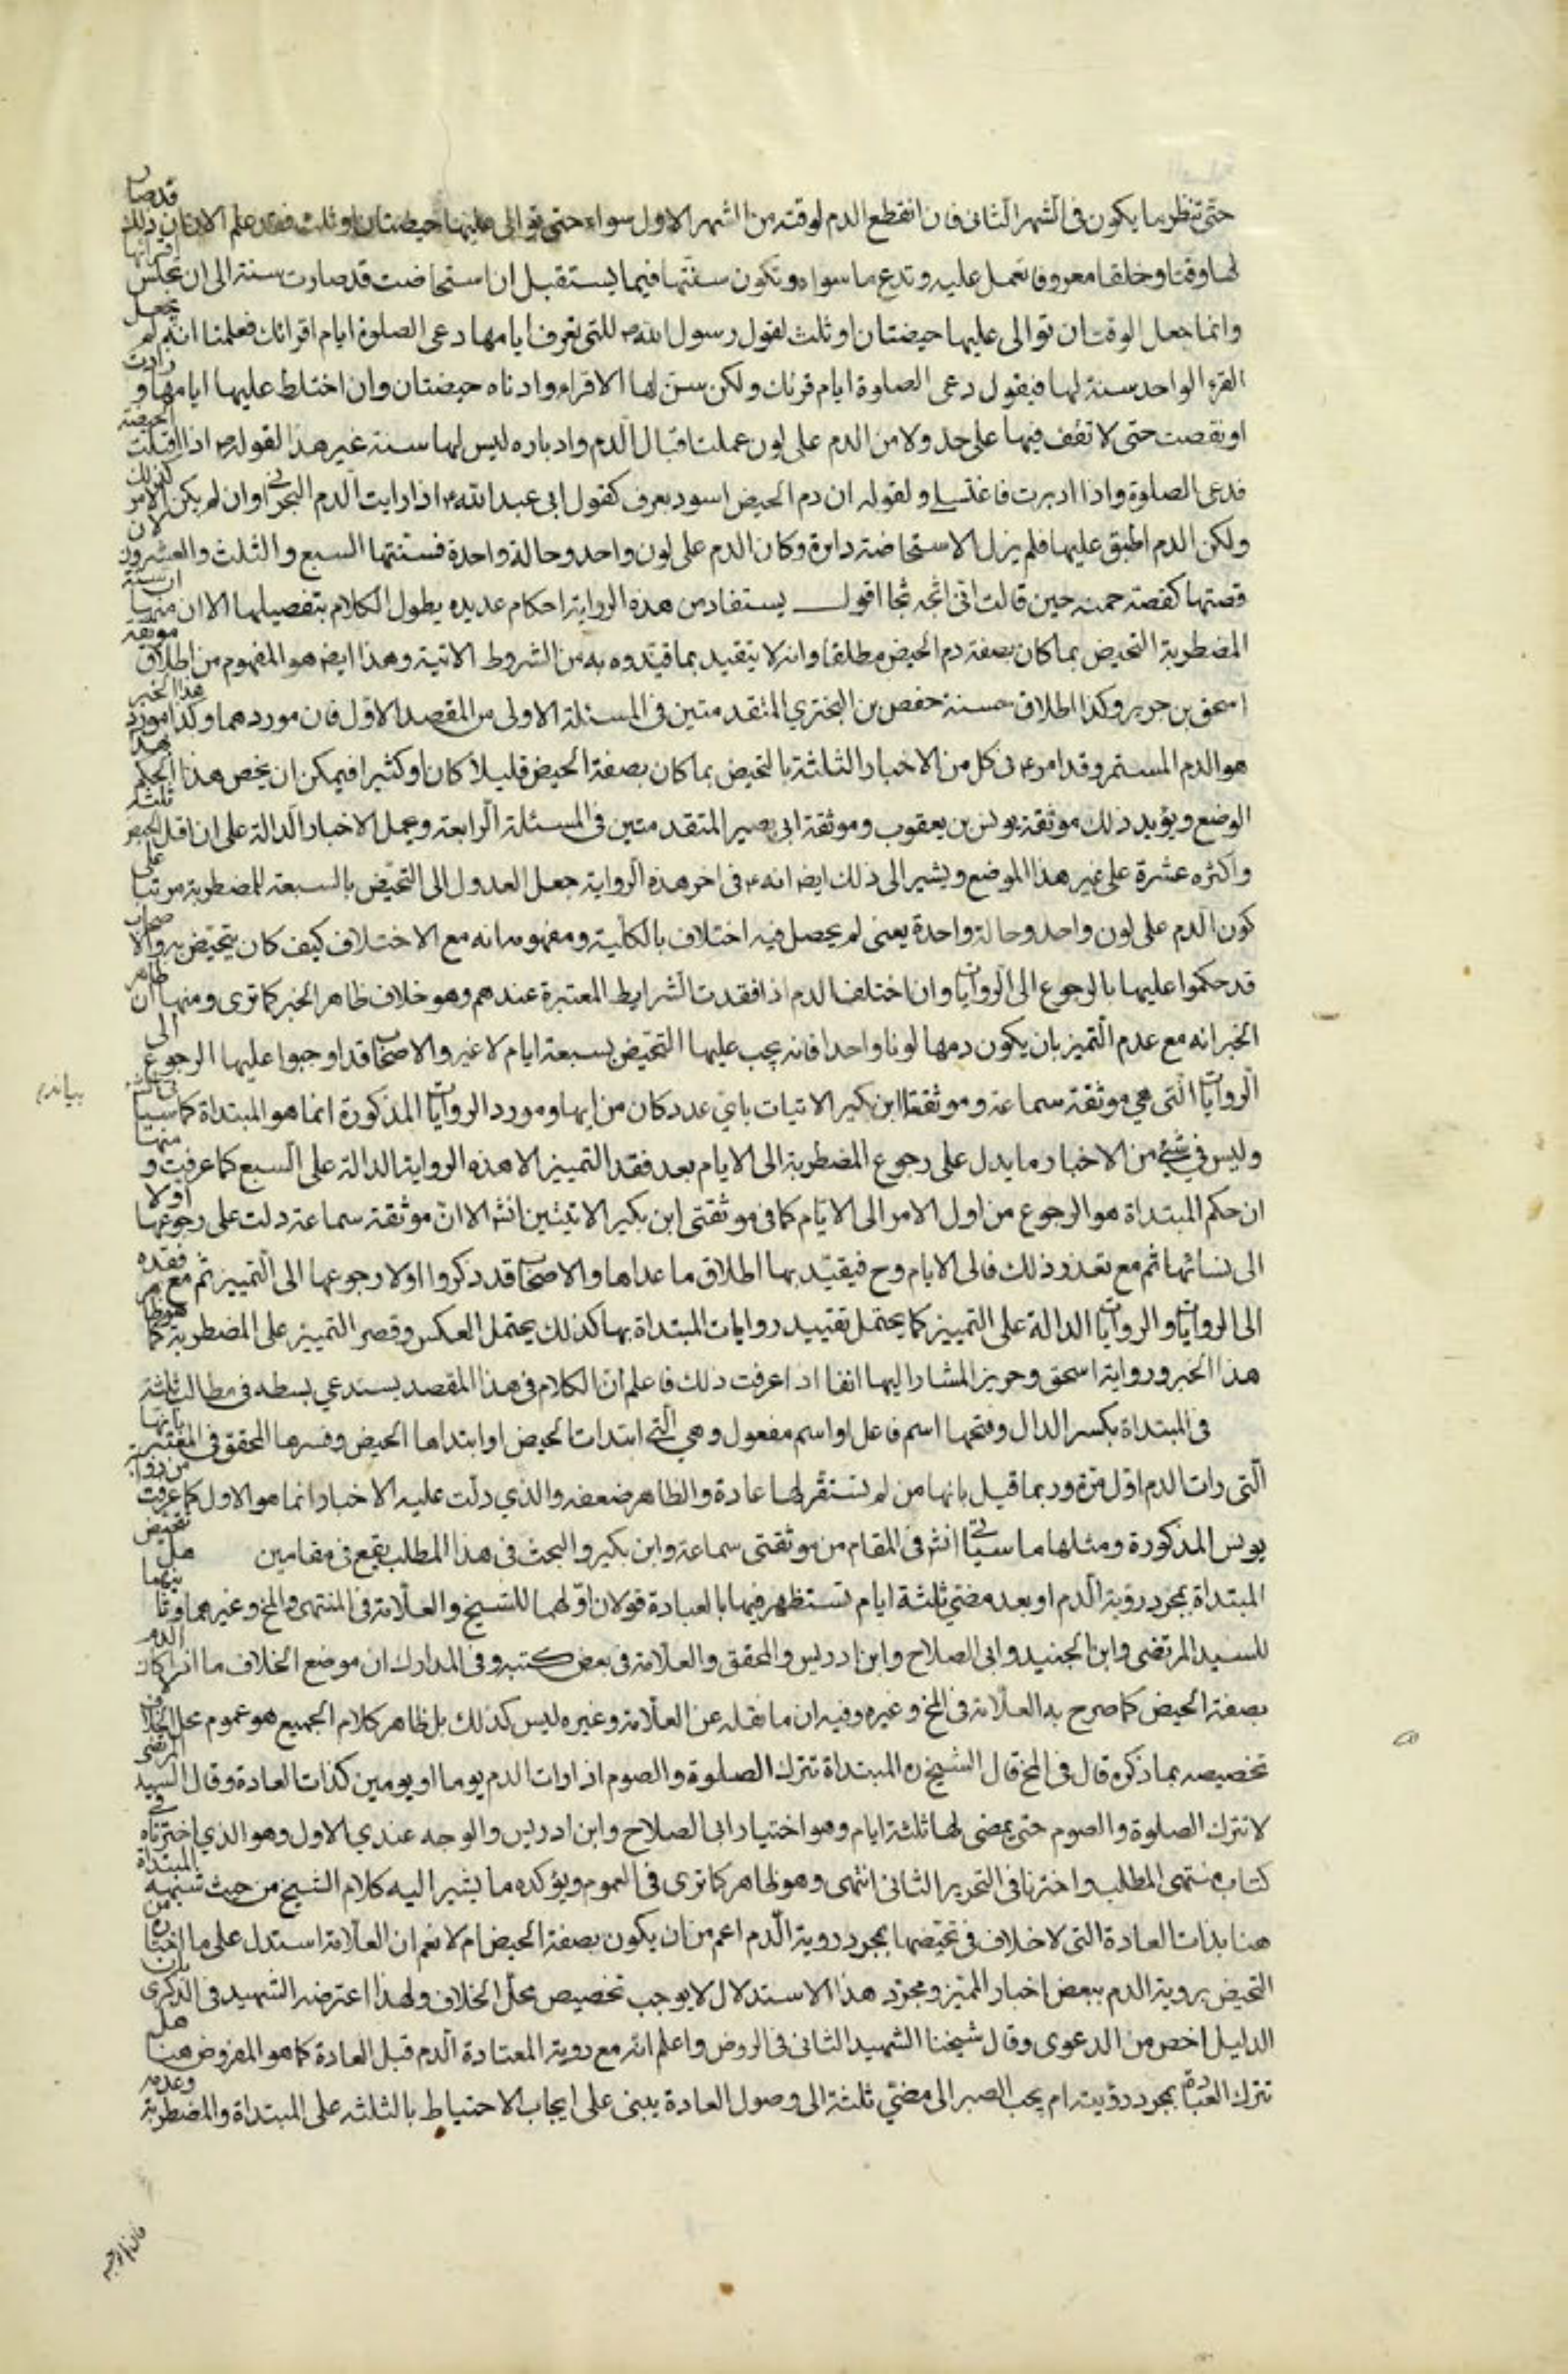 حتى تنظر ما يكون فى الشهر الثانى فان انقطع الدم لوقته من الشهر الاول سواء حتى توالى عليها حيضتان او ثلث فقد علم الان ان ذلك قد صار
لها وقتا وخلقا معروفا تعمل عليه وتدع ما سواه وتكون سنتها فيما يستقبل ان استحاضت قد صارت سنة الى ان تجلس اقرائها
وانما جعل الوقت ان توالى عليها حيضتان او ثلث لقول رسول الله ص للتى تعرف ايامها دعى الصلوة ايام اقرائك فعلمنا انه لم يجعل
القرء الواحد سنة لها فيقول دعى الصلوة ايام قرئك ولكن سن لها الاقراء وادناه حيضتان وان اختلط عليها ايامها و زادت
او نقصت حتى لا تقف فيها على حد ولا من الدم على لون عملت اقبال الدم وادباره ليس لها سنة غير هذا لقوله ص اذا اقبلت الحيضة
فدعى الصلوة واذا ادبرت فاغتسلى ولقوله ان دم الحيض اسود يعرف كقول ابى عبد الله ع اذا رايت الدم البحرانى وان لم يكن الامر كذلك
ولكن الدم اطبق عليها فلم يزل الاستحاضة دارة وكان الدم على لون واحد وحالة واحدة فسنتها السبع والثلث والعشرون لان
قصتها كقصة حمنة حين قالت انى اثجه ثجا اقول يستفاد من هذه الرواية احكام عديده يطول الكلام بتفصيلها الا ان منها ان سنة
المضطربة التحيض بما كان بصفة دم الحيض مطلقا وانه لا يتقيد بما قيدوه به من الشروط الاتية وهذا ايض هو المفهوم من اطلاق موثقة
اسحق بن جرير وكذا اطلاق حسنة حفص بن البخترى المتقدمتين فى المسئلة الاولى من المقصد الاول فان موردهما وكذا مورد هذا الخبر
هو الدم المستمر وقد امر ع فى كل من الاخبار الثلثة بالتحيض بما كان بصفة الحيض قليلا كان او كثيرا فيمكن ان يخص هذا الحكم بهذا
الوضع ويؤيد ذلك موثقة يونس بن يعقوب وموثقة ابى بصير المتقدمتين فى المسئلة الرابعة ويحمل الاخبار الدالة على ان اقل الحيض ثلثة
واكثره عشرة على غير هذا الموضع ويشير الى ذلك ايض انه ع فى اخر هذه الرواية جعل العدول الى التحيض بالسبعة للمضطربة مرتبا على
كون الدم على لون واحد وحالة واحدة يعنى لم يحصل فيه اختلاف بالكلية ومفهومه انه مع الاختلاف كيف كان يتحيض به والاصحاب
قد حكموا عليها بالرجوع الى الروايات وان اختلف الدم اذا فقدت الشرايط المعتبرة عندهم وهو خلاف ظاهر الخبر كما ترى ومنها ان ظاهر
الخبر انه مع عدم التميز بان يكون دمها لونا واحدا فانه يجب عليها التحيض بسبعة ايام لا غير والاصحاب قد اوجبوا عليها الرجوع الى
الروايات التى هى موثقة سماعة وموثقتا ابن بكير الاتيات باى عدد كان من ايها ومورد الروايات المذكورة انما هو المبتداة كما سيا
وليس فى شئ من الاخبار ما يدل على رجوع المضطربة الى الايام بعد فقد التمييز الا هذه الرواية الدالة على السبع كما عرفت و منها
ان حكم المبتداة هو الرجوع من اول الامر الى الايام كما فى موثقتى ابن بكير الاتيتين انش الا ان موثقة سماعة دلت على رجوعها اولا
الى نسائها ثم مع تعذر ذلك فالى الايام وح فيقيد بها اطلاق ما عداها والاصحاب قد ذكروا اولا رجوعها الى التمييز ثم مع فقده
الى الروايات والروايات الدالة على التمييز كما يحتمل تقييد روايات المبتداة بها كذلك يحتمل العكس وقصر التمييز على المضطربة كما هو ظاهر
هذا الخبر ورواية اسحق وحريز المشار اليها انفا اذا عرفت ذلك فاعلم ان الكلام فى هذا المقصد يستدعي بسطه فى مطالب ثلثة
فى المبتداة بكسر الدال وفتحها اسم فاعل او اسم مفعول وهي التى ابتدات الحيض او ابتداها الحيض وفسرها المحقق فى المعتبر بانها
التى رات الدم اول مرة وربما قيل بانها من لم تستقر لها عادة والظاهر ضعفه والذي دلت عليه الاخبار انما هو الاول كما عرفت من رواية
يونس المذكورة ومثلها ما سياتى انش فى المقام من موثقتى سماعة وابن بكير والبحث فى هذا المطلب يقع فى مقامين هل تتحيض
المبتداة بمجرد رؤية الدم او بعد مضى ثلثة ايام تستظهر فيها بالعبادة قولان اولهما للشيخ والعلامة فى المنتهى والمخ وغيرهما وثانيهما
للسيد المرتضى وابن الجنيد وابى الصلاح وابن ادريس والمحقق والعلامة فى بعض كتبه وفى المدارك ان موضع الخلاف ما اذا كان الدم
بصفة الحيض كما صرح به العلامة فى المخ وغيره وفيه ان ما نقله عن العلامة وغيره ليس كذلك بل ظاهر كلام الجميع هو عموم محل الخلاف
تخصيصه بما ذكره قال فى المخ قال الشيخ ره المبتداة تترك الصلوة والصوم اذا رات الدم يوما او يومين كذات العادة وقال السيد المرتضى
لا تترك الصلوة والصوم حتى يمضى لها ثلثة ايام وهو اختيار ابى الصلاح وابن ادريس والوجه عندي الاول وهو الذي اخترناه فى
كتاب منتهى المطلب واخترنا فى التحرير الثانى انتهى وهو ظاهر كما ترى فى العموم ويؤكده ما يشير اليه كلام الشيخ من حيث تشبيهه المبتداة
هنا بذات العادة التى لا خلاف فى تحيضها بمجرد روية الدم اعم من ان يكون بصفة الحيض ام لا نعم ان العلامة استدل على ما اختاره من
التحيض بروية الدم ببعض اخبار التميز ومجرد هذا الاستدلال لا يوجب تخصيص محل الخلاف ولهذا اعترضه الشهيد فى الذكرى بان
الدليل اخص من الدعوى وقال شيخنا الشهيد الثانى فى الروض واعلم انه مع روية المعتادة الدم قبل العادة كما هو المفروض هنا هل
تترك العبادة بمجرد رؤيته ام يجب الصبر الى مضى ثلثة الى وصول العادة يبنى على ايجاب الاحتياط بالثلثه على المبتداة والمضطربة وعدمه